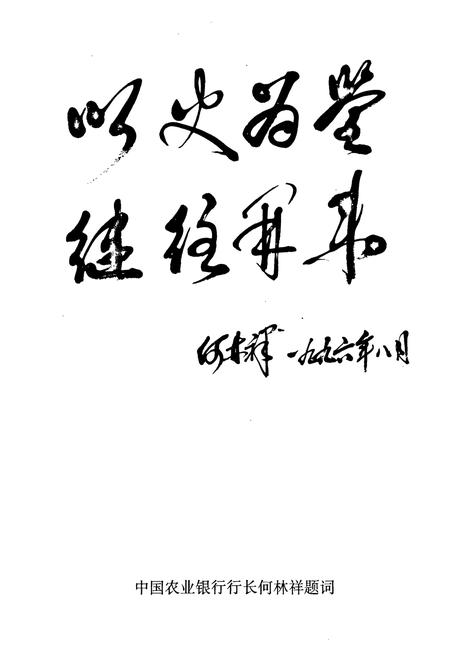 以史为鉴
继往开来
何林祥 一九九六年八月
中国农业银行行长何林祥题词